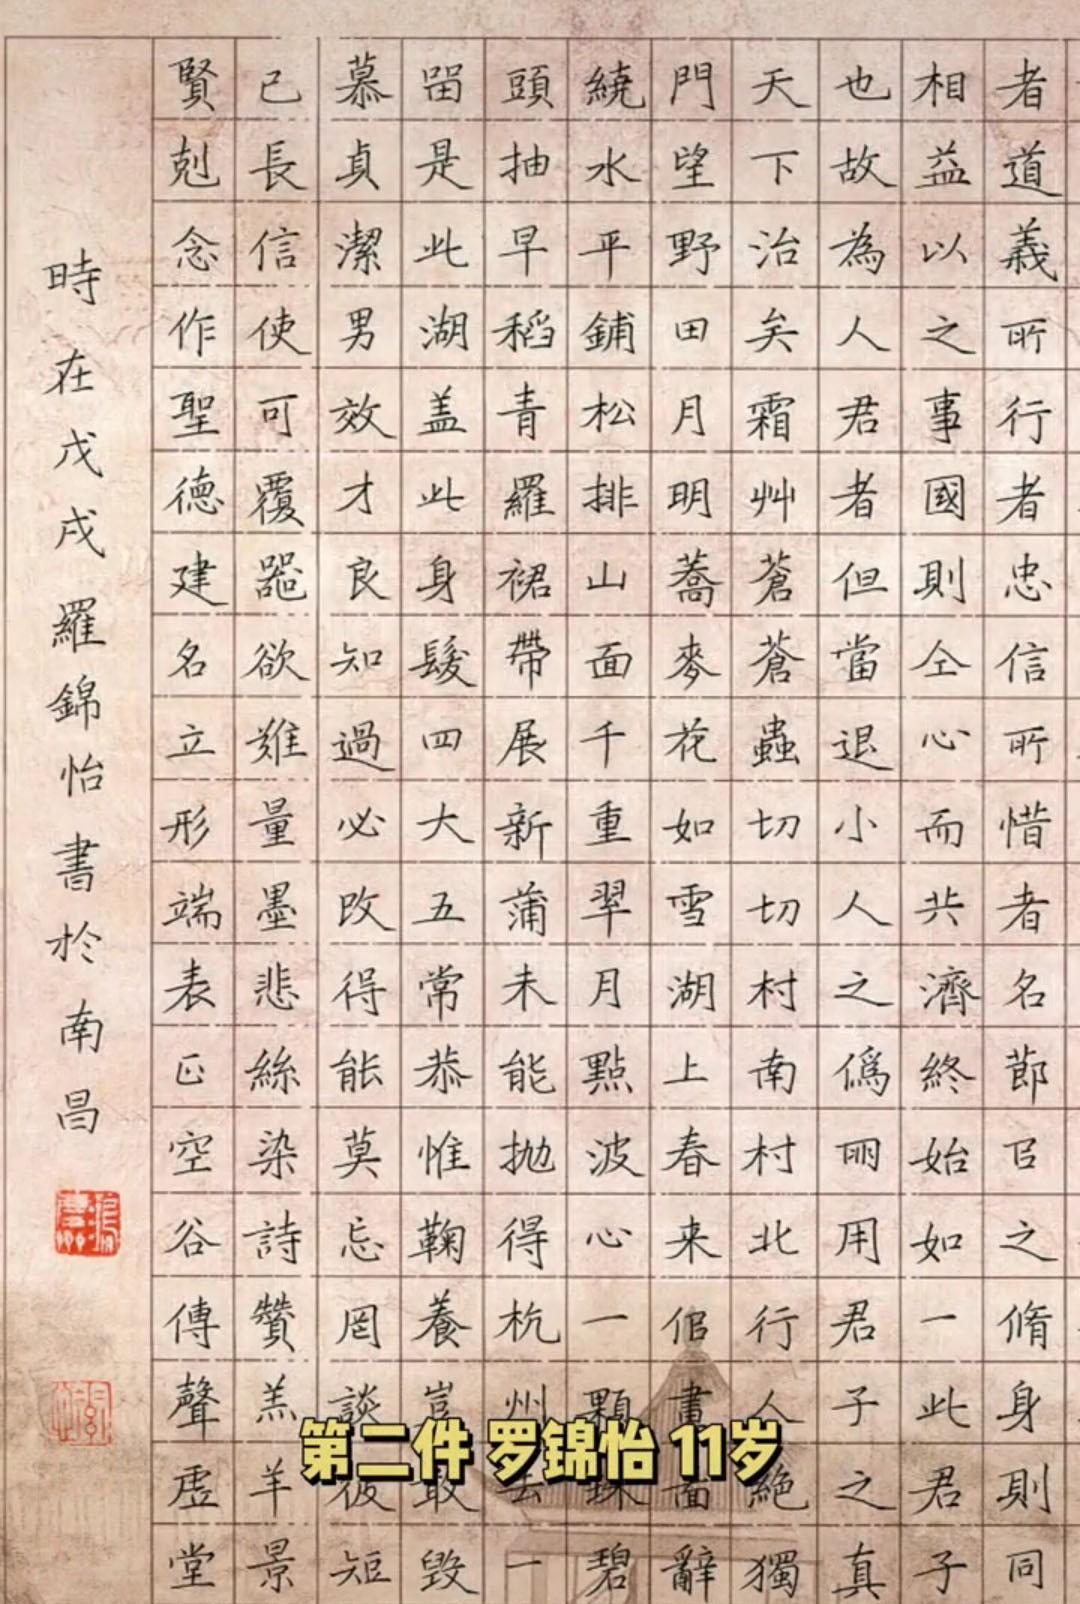 者道義所行者忠信所惜者名莭㠯之脩身則同
相益以之事國則仝心而共濟終始如一此君子
也故為人君者但當退小人之僞朋用君子之真
天下治矣霜艸蒼蒼蟲切切村南村北行人絕獨
門望野田月明蕎麥花如雪湖上春来佀畫啚辭
繞水平鋪松排山面千重翠月點波心一顆珠碧
頭抽早稻青羅裙帶展新蒲未能抛得杭州去一
留是此湖盖此身髮四大五常恭惟鞠養豈敢毀
慕貞潔男效才良知過必改得能莫忘罔談彼短
已長信使可覆器欲難量墨悲絲染詩贊羔羊景
賢剋念作聖德建名立形端表正空谷傳聲虛堂
時在戊戌羅錦怡書於南昌
第二件 罗锦怡 11岁